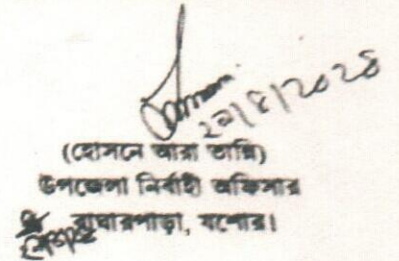 ২০/৪/২০২৪
(হোসনে আরা তান্নি)
উপজেলা নির্বাহী অফিসার
বাঘারপাড়া, যশোর।